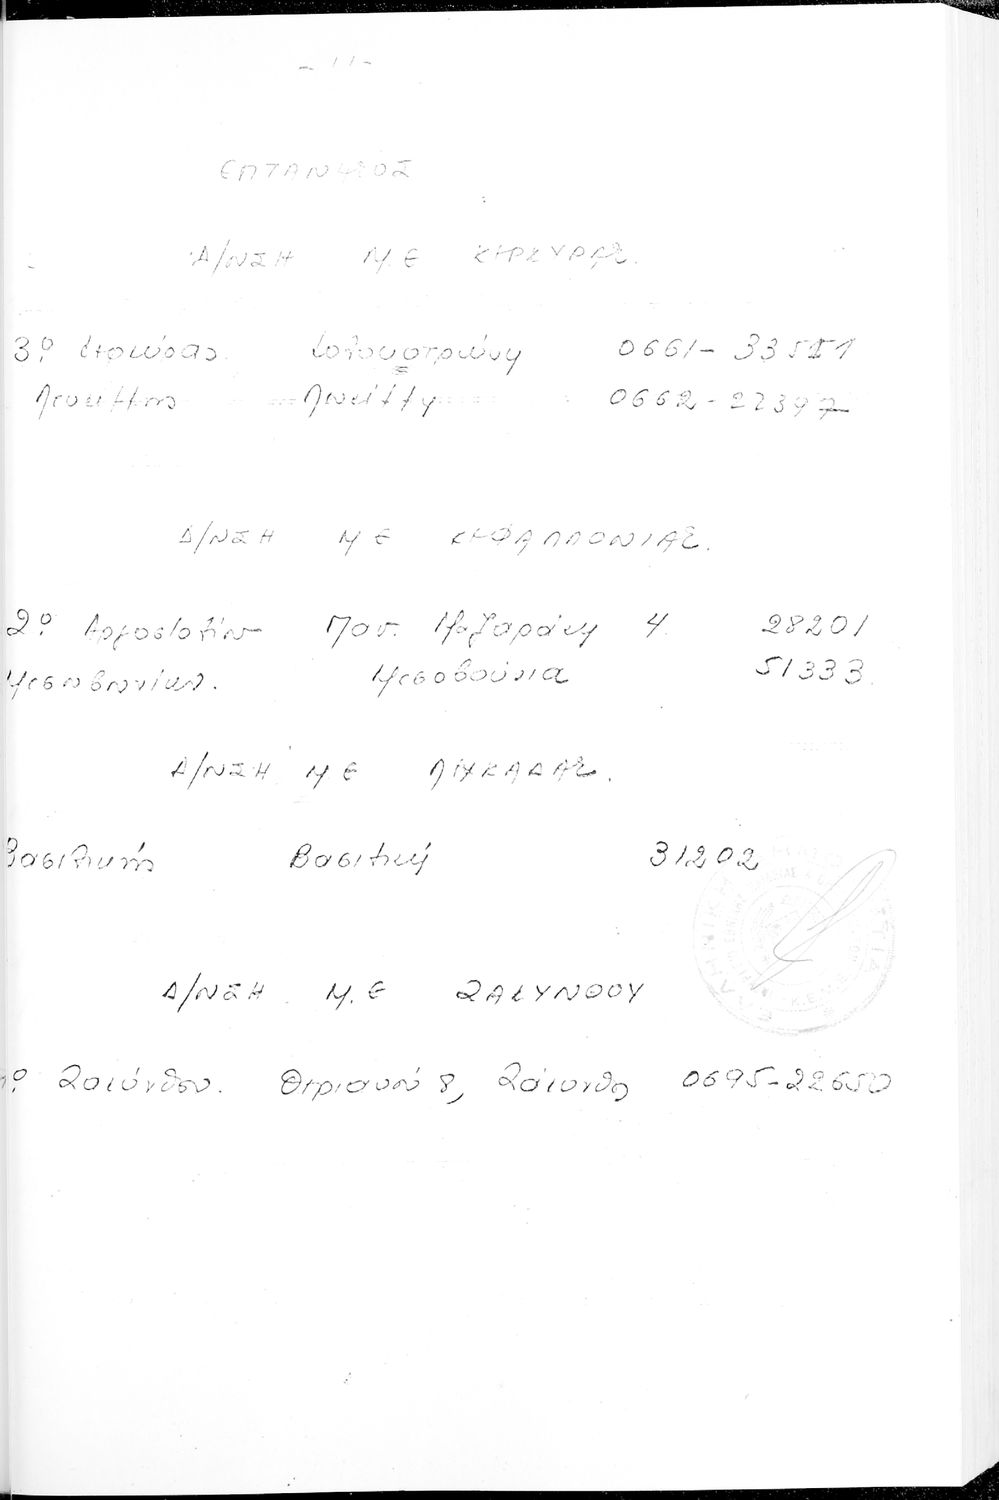 - 11 -
ΕΠΤΑΝΗΣΟΣ
Δ/ΝΣΗ Μ.Ε ΚΕΡΚΥΡΑΣ.
3ο Κερκύρας 0661-33511
Λευκίμμης Λευκίμμη 0662-22397
Δ/ΝΣΗ Μ Ε ΚΕΦΑΛΛΟΝΙΑΣ.
2ο Αργοστολίου Παν. 4 28201
Μεσοβουνίων. Μεσοβούνια 51333
Δ/ΝΣΗ Μ Ε ΛΕΥΚΑΔΑΣ.
Βασιλικής Βασιλική 31202
Δ/ΝΣΗ Μ.Ε ΖΑΚΥΝΘΟΥ
Ζακύνθου. 8, Ζάκυνθος 0695-22650